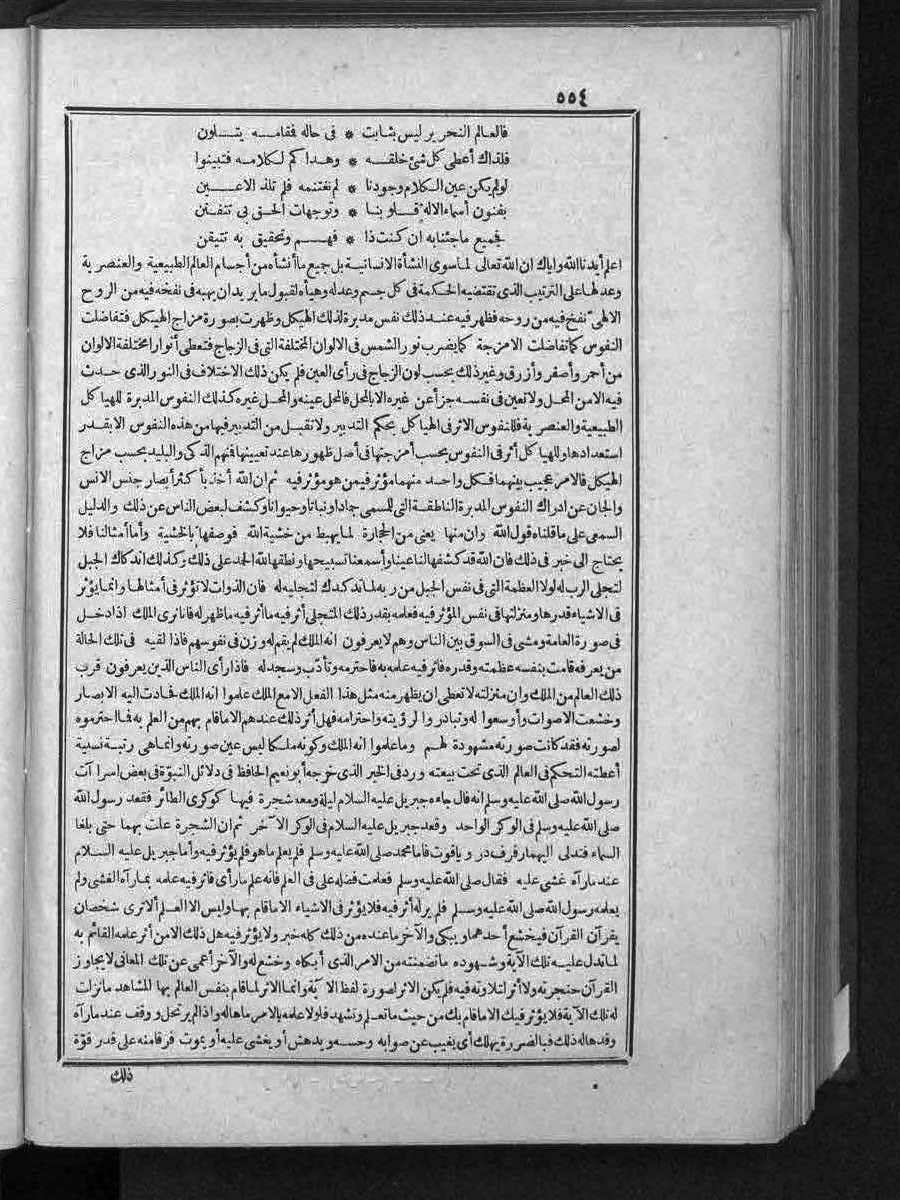 ٥٥٤
فالعالم النحرير ليس بثابت * فى حاله فمقامه يتلون
فلذاك أعطى كل شئ خلقه * وهداكم لكلامه فتبينوا
لو لم يكن عين الكلام وجودنا * لم نغتنمه فلم تلذ الاعين
بفنون أسماء الاله قلوبنا * وتوجهات الحق بى تتفنن
فجميع ما جئنا به ان كنت ذا * فهم وتحقيق به تتيقن
اعلم أيدنا الله واياك ان الله تعالى لما سوى النشأة الانسانية بل جميع ما أنشأه من أجسام العالم الطبيعية والعنصرية
وعدلها على الترتيب الذى تقتضيه الحكمة فى كل جسم وعدله وهيأه لقبول ما يريد ان يهبه فى نفخه فيه من الروح
الالهى نفخ فيه من روحه فظهر فيه عند ذلك نفس مدبرة لذلك الهيكل وظهرت بصورة مزاج الهيكل فتفاضلت
النفوس كما تفاضلت الامزجة كما يضرب نور الشمس فى الالوان المختلفة التى فى الزجاج فتعطى أنوارا مختلفة الالوان
من أحمر وأصفر وأزرق وغير ذلك بحسب لون الزجاج فى رأى العين فلم يكن ذلك الاختلاف فى النور الذى حدث
فيه الا من المحل ولا تعين فى نفسه جزأ عن غيره الا بالمحل فالمحل عينه والمحل غيره كذلك النفوس المدبرة للهياكل
الطبيعية والعنصرية فللنفوس الاثر فى الهياكل بحكم التدبير ولا تقبل من التدبير فيها من هذه النفوس الا بقدر
استعدادها وللهياكل أثر فى النفوس بحسب أمزجتها فى أصل ظهورها عند تعيينها فمنهم الذكى والبليد بحسب مزاج
الهيكل فالامر عجيب بينهما فكل واحد منهما مؤثر فيمن هو مؤثر فيه ثم ان الله أخذ بأكثر أبصار جنس الانس
والجان عن ادراك النفوس المدبرة الناطقة التى للمسمى جمادا ونباتا وحيوانا وكشف لبعض الناس عن ذلك والدليل
السمعى على ما قلناه قول الله وان منها يعنى من الحجارة لما يهبط من خشية الله فوصفها بالخشية وأما أمثالنا فلا
يحتاج الى خبر فى ذلك فان الله قد كشفها لنا عينا وأسمعنا تسبيحها ونطقها لله الحمد على ذلك وكذلك اندكاك الجبل
لتجلى الرب له لولا العظمة التى فى نفس الجبل من ربه لما تدكدك لتجليه له فان الذوات لا تؤثر فى أمثالها وانما يؤثر
فى الاشياء قدرها ومنزلتها فى نفس المؤثر فيه فعلمه بقدر ذلك المتجلى أثر فيه ما أثر فيه ما ظهر له فانا نرى الملك اذا دخل
فى صورة العامة ومشى فى السوق بين الناس وهم لا يعرفون انه الملك لم يقم له وزن فى نفوسهم فاذا لقيه فى تلك الحالة
من يعرفه قامت بنفسه عظمته وقدره فاثر فيه علمه به فاحترمه وتأدب وسجد له فاذا رأى الناس الذين يعرفون قرب
ذلك العالم من الملك وان منزلته لا تعطى ان يظهر منه مثل هذا الفعل الا مع الملك علموا انه الملك فحادت اليه الابصار
وخشعت الاصوات وأوسعوا له وتبادروا لرؤيته واحترامه فهل أثر ذلك عندهم الا ما قام بهم من العلم به فما احترموه
لصورته فقد كانت صورته مشهودة لهم وما علموا انه الملك وكونه ملكا ليس عين صورته وانما هى رتبة نسبية
أعطته التحكم فى العالم الذى تحت بيعته ورد فى الخبر الذى خرجه أبو نعيم الحافظ فى دلائل النبوة فى بعض اسراآت
رسول الله صلى الله عليه وسلم انه قال جاءه جبريل عليه السلام ليلة ومعه شجرة فيها كوكرى الطائر فقعد رسول الله
صلى الله عليه وسلم فى الوكر الواحد وقعد جبريل عليه السلام فى الوكر الآخر ثم ان الشجرة علت بهما حتى بلغا
السماء فتدلى اليهما رفرف در وياقوت فاما محمد صلى الله عليه وسلم فلم يعلم ما هو فلم يؤثر فيه وأما جبريل عليه السلام
عند ما رآه غشى عليه فقال صلى الله عليه وسلم فعلمت فضله على فى العلم فانه علم ما رأى فاثر فيه علمه بما رآه الغشى ولم
يعلمه رسول الله صلى الله عليه وسلم فلم ير له أثر فيه فلا يؤثر فى الاشياء الا ما قام بها وليس الا العلم ألا ترى شخصان
يقرآن القرآن فيخشع أحدهما ويبكى والآخر ما عنده من ذلك كله خبر ولا يؤثر فيه هل ذلك الا من أثر علمه القائم به
لما تدل عليه تلك الآية وشهوده ما تضمنته من الامر الذى أبكاه وخشع له والآخر أعمى عن تلك المعانى لا يجاوز
القرآن حنجرته ولا أثر لتلاوته فيه فلم يكن الاثر لصورة لفظ الآية وانما الاثر لما قام بنفس العالم بها المشاهد ما نزلت
له تلك الآية فلا يؤثر فيك الا ما قام بك من حيث ما تعلم وتشهد فلولا علمه بالامر ما هاله واذا لم يرتحل ووقف عند ما رآه
وقد هاله ذلك فبالضرورة يهلك أى يغيب عن صوابه وحسه ويدهش أو يغشى عليه أو يموت فرقا منه على قدر قوة
ذلك